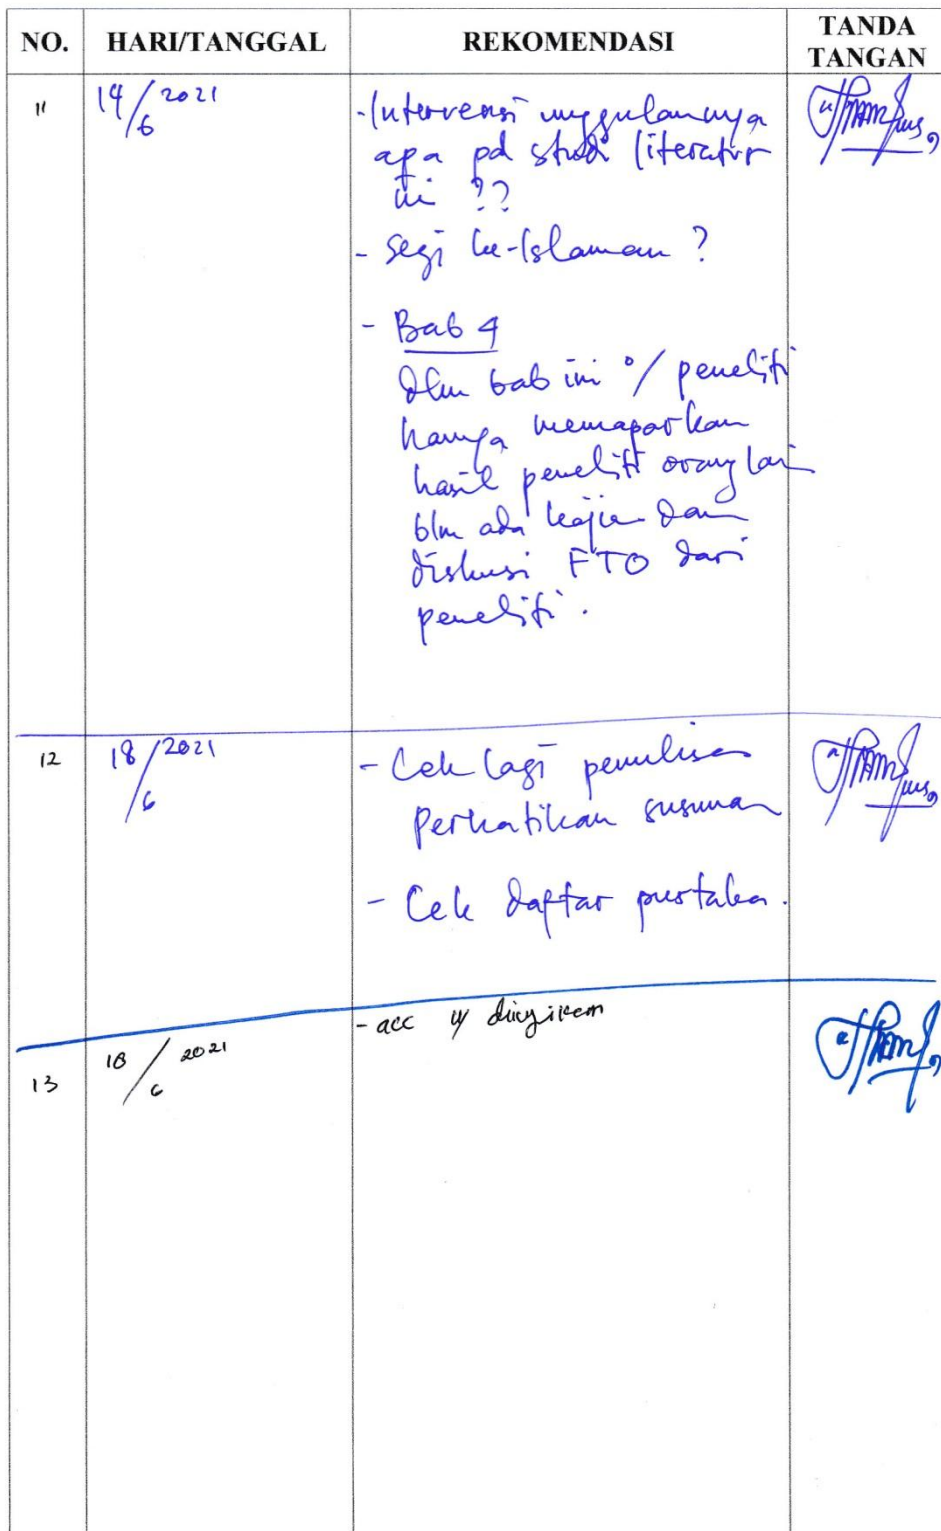 NO. HARI/TANGGAL REKOMENDASI TANDA TANGAN
11 14/6 2021
- Intervensi unggulannya
apa pd studi literatur
ini ??
- Segi ke-Islaman ?
- Bab 4
dlm bab ini o/ peneliti
hanya memaparkan
hasil peneliti orang lain
blm ada kajian dan
diskusi FTO dari
peneliti.
12 18/6 2021
- Cek lagi penulisan
Perhatikan susunan
- Cek daftar pustaka.
- acc u/ diujikan
13 18/6 2021